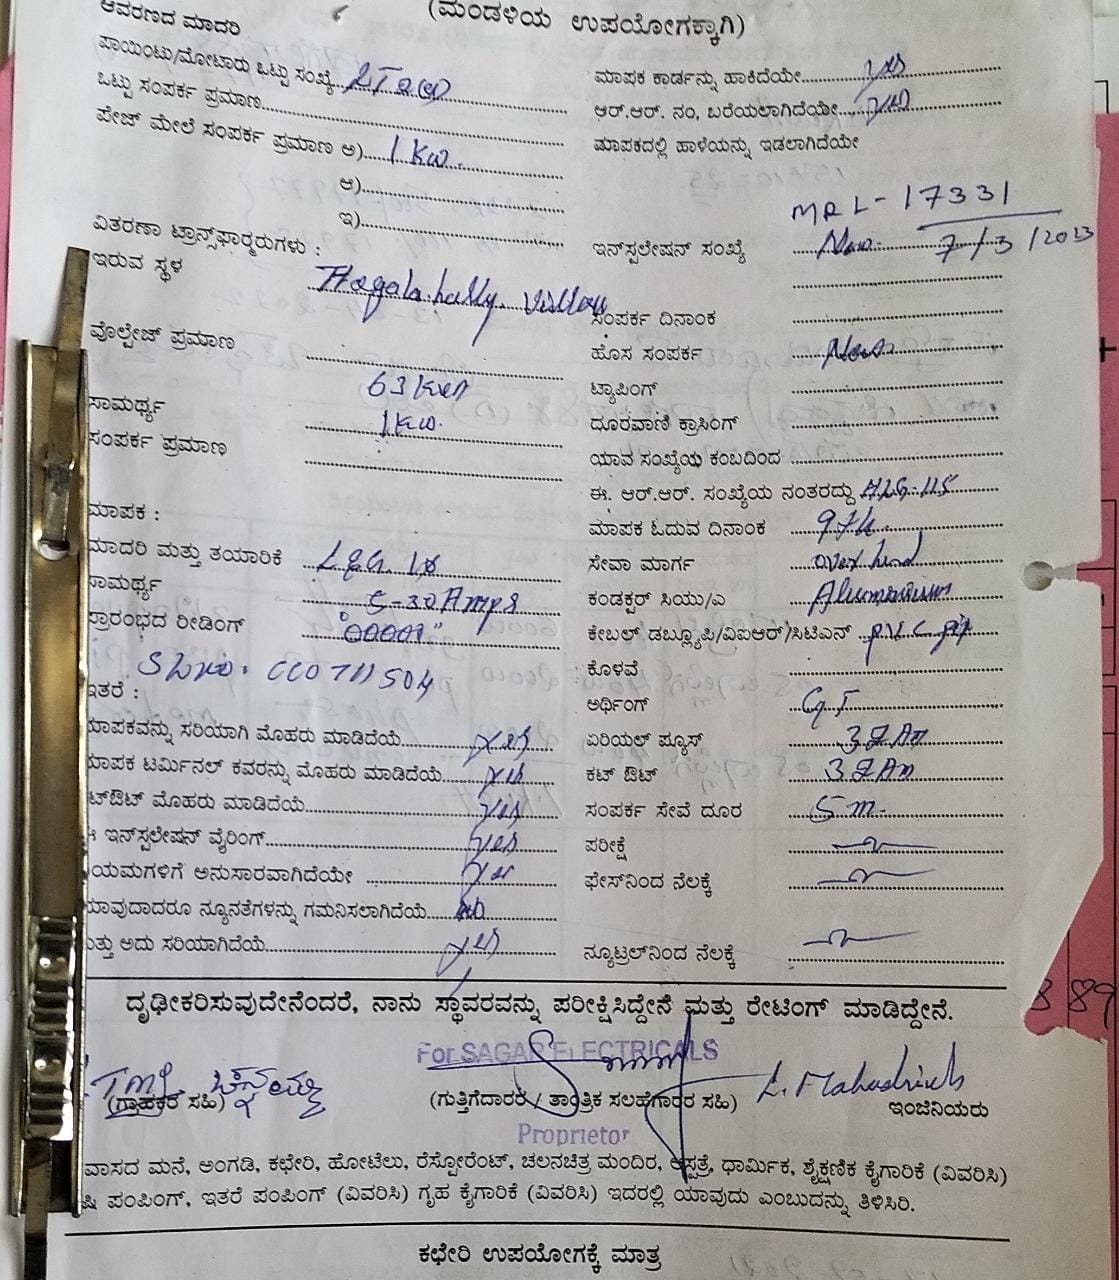 ಆವರಣದ ಮಾದರಿ
(ಮಂಡಳಿಯ ಉಪಯೋಗಕ್ಕಾಗಿ)
ಪಾಯಿಂಟು/ಮೋಟಾರು ಒಟ್ಟು ಸಂಖ್ಯೆ
ಒಟ್ಟು ಸಂಪರ್ಕ ಪ್ರಮಾಣ
ಪೇಜ್ ಮೇಲೆ ಸಂಪರ್ಕ ಪ್ರಮಾಣ ಅ) 1 Kw.
ಆ)
ಇ)
ವಿತರಣಾ ಟ್ರಾನ್ಸ್‌ಫಾರ್‍ಮರುಗಳು :
ಇರುವ ಸ್ಥಳ
ವೊಲ್ಟೇಜ್ ಪ್ರಮಾಣ
63
ಸಾಮರ್ಥ್ಯ 1Kw.
ಸಂಪರ್ಕ ಪ್ರಮಾಣ
ಮಾಪಕ :
ಮಾದರಿ ಮತ್ತು ತಯಾರಿಕೆ L&G 1Ø
ಸಾಮರ್ಥ್ಯ 5-30Amps
ಪ್ರಾರಂಭದ ರೀಡಿಂಗ್ "00001"
ಇತರೆ :
ಮಾಪಕವನ್ನು ಸರಿಯಾಗಿ ಮೊಹರು ಮಾಡಿದೆಯೆ yes
ಮಾಪಕ ಟರ್ಮಿನಲ್ ಕವರನ್ನು ಮೊಹರು ಮಾಡಿದೆಯೆ yes
ಟ್‌ಔಟ್ ಮೊಹರು ಮಾಡಿದೆಯೆ yes
ಈ ಇನ್‌ಸ್ಟಲೇಷನ್ ವೈರಿಂಗ್ yes
ಯಮಗಳಿಗೆ ಅನುಸಾರವಾಗಿದೆಯೇ yes
ಯಾವುದಾದರೂ ನ್ಯೂನತೆಗಳನ್ನು ಗಮನಿಸಲಾಗಿದೆಯೆ no
ಮತ್ತು ಅದು ಸರಿಯಾಗಿದೆಯೆ yes
ಮಾಪಕ ಕಾರ್ಡನ್ನು ಹಾಕಿದೆಯೇ yes
ಆರ್.ಆರ್. ನಂ, ಬರೆಯಲಾಗಿದೆಯೇ yes
ಮಾಪಕದಲ್ಲಿ ಹಾಳೆಯನ್ನು ಇಡಲಾಗಿದೆಯೇ
MRL-17331
ಇನ್‌ಸ್ಟಲೇಷನ್ ಸಂಖ್ಯೆ 7/3/2023
ಸಂಪರ್ಕ ದಿನಾಂಕ
ಹೊಸ ಸಂಪರ್ಕ New
ಟ್ಯಾಪಿಂಗ್
ದೂರವಾಣಿ ಕ್ರಾಸಿಂಗ್
ಯಾವ ಸಂಖ್ಯೆಯ ಕಂಬದಿಂದ
ಈ. ಆರ್.ಆರ್. ಸಂಖ್ಯೆಯ ನಂತರದ್ದು
ಮಾಪಕ ಓದುವ ದಿನಾಂಕ 9th
ಸೇವಾ ಮಾರ್ಗ over head
ಕಂಡಕ್ಟರ್ ಸಿಯು/ಎ Aluminium
ಕೇಬಲ್ ಡಬ್ಲ್ಯೂಪಿ/ವಿಐಆರ್/ಸಿಟಿಎಸ್ P.V.C
ಕೊಳವೆ
ಅರ್ಥಿಂಗ್ G.I
ಏರಿಯಲ್ ಪ್ಯೂಸ್ 32 Am
ಕಟ್ ಔಟ್ 32 Am
ಸಂಪರ್ಕ ಸೇವೆ ದೂರ 5 m
ಪರೀಕ್ಷೆ
ಫೇಸ್‌ನಿಂದ ನೆಲಕ್ಕೆ
ನ್ಯೂಟ್ರಲ್‌ನಿಂದ ನೆಲಕ್ಕೆ
ದೃಢೀಕರಿಸುವುದೇನೆಂದರೆ, ನಾನು ಸ್ಥಾವರವನ್ನು ಪರೀಕ್ಷಿಸಿದ್ದೇನೆ ಮತ್ತು ರೇಟಿಂಗ್ ಮಾಡಿದ್ದೇನೆ.
For SAGAR ELECTRICALS
(ಗ್ರಾಹಕರ ಸಹಿ)
(ಗುತ್ತಿಗೆದಾರರ / ತಾಂತ್ರಿಕ ಸಲಹೆಗಾರರ ಸಹಿ)
ಇಂಜಿನಿಯರು
Proprietor
ವಾಸದ ಮನೆ, ಅಂಗಡಿ, ಕಛೇರಿ, ಹೋಟೆಲು, ರೆಸ್ಟೋರೆಂಟ್, ಚಲನಚಿತ್ರ ಮಂದಿರ, ಆಸ್ಪತ್ರೆ, ಧಾರ್ಮಿಕ, ಶೈಕ್ಷಣಿಕ ಕೈಗಾರಿಕೆ (ವಿವರಿಸಿ)
ಷಿ ಪಂಪಿಂಗ್, ಇತರೆ ಪಂಪಿಂಗ್ (ವಿವರಿಸಿ) ಗೃಹ ಕೈಗಾರಿಕೆ (ವಿವರಿಸಿ) ಇದರಲ್ಲಿ ಯಾವುದು ಎಂಬುದನ್ನು ತಿಳಿಸಿರಿ.
ಕಛೇರಿ ಉಪಯೋಗಕ್ಕೆ ಮಾತ್ರ